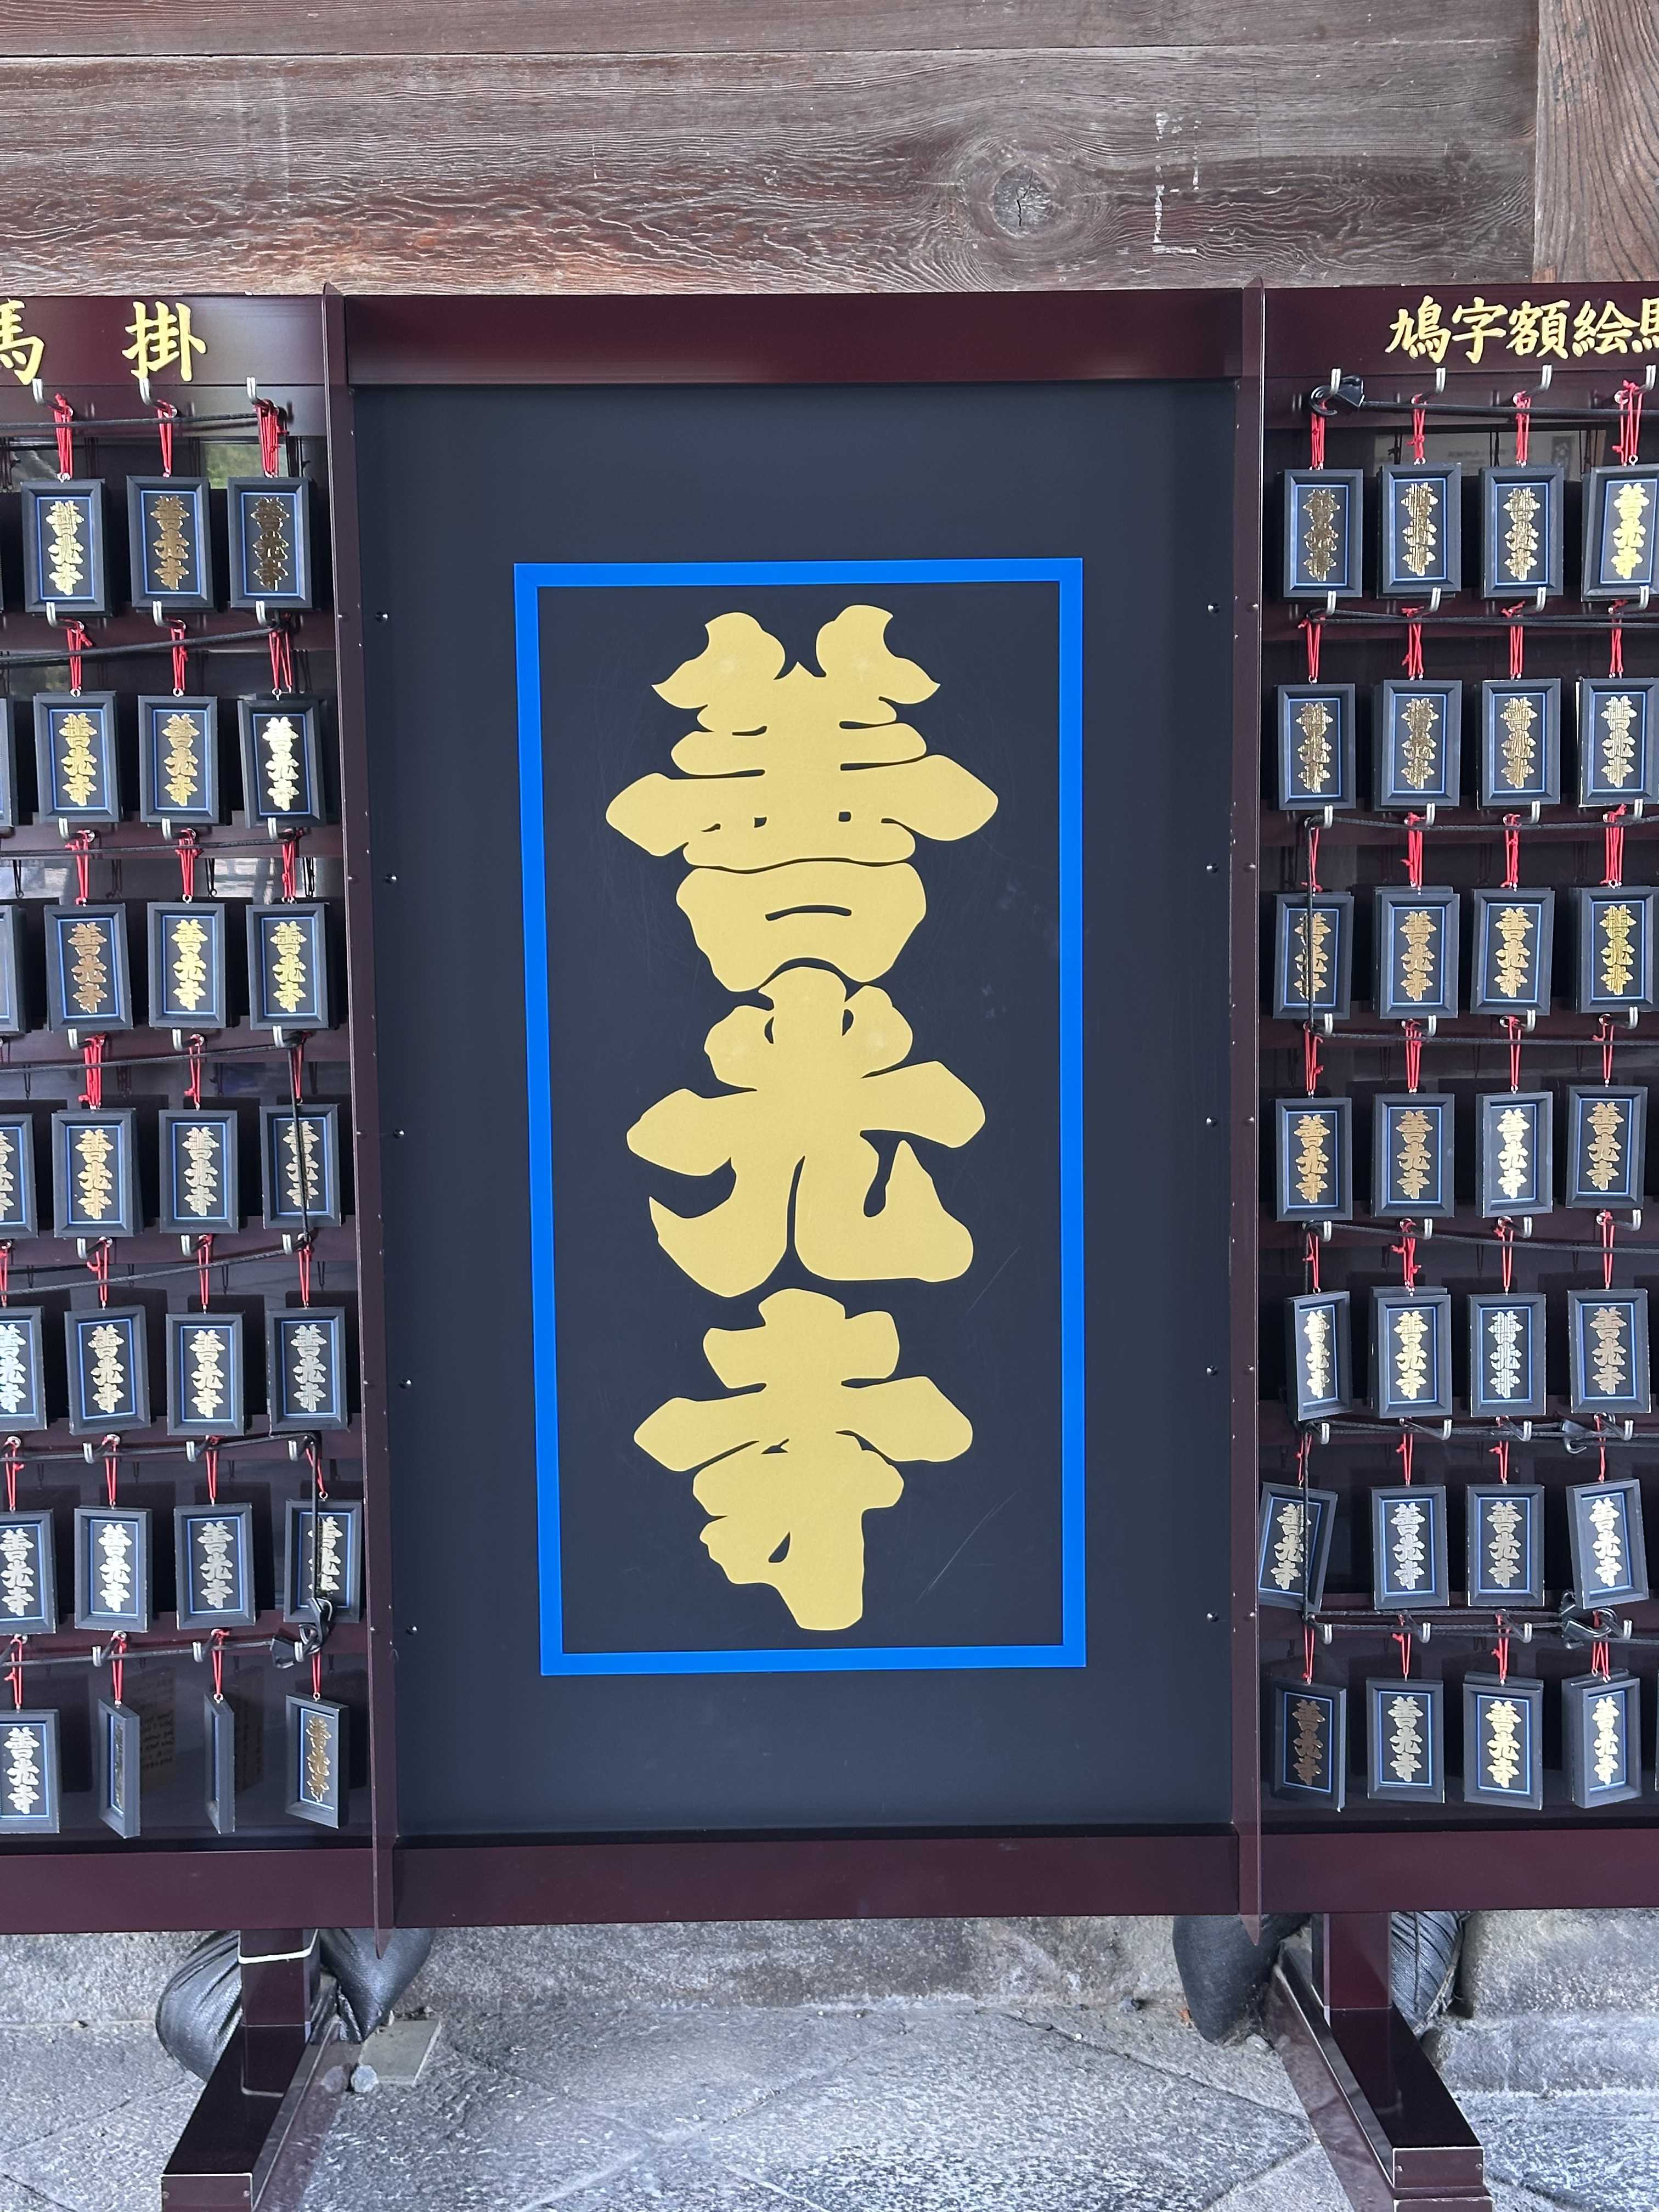 馬掛
善光寺
鳩字額絵馬